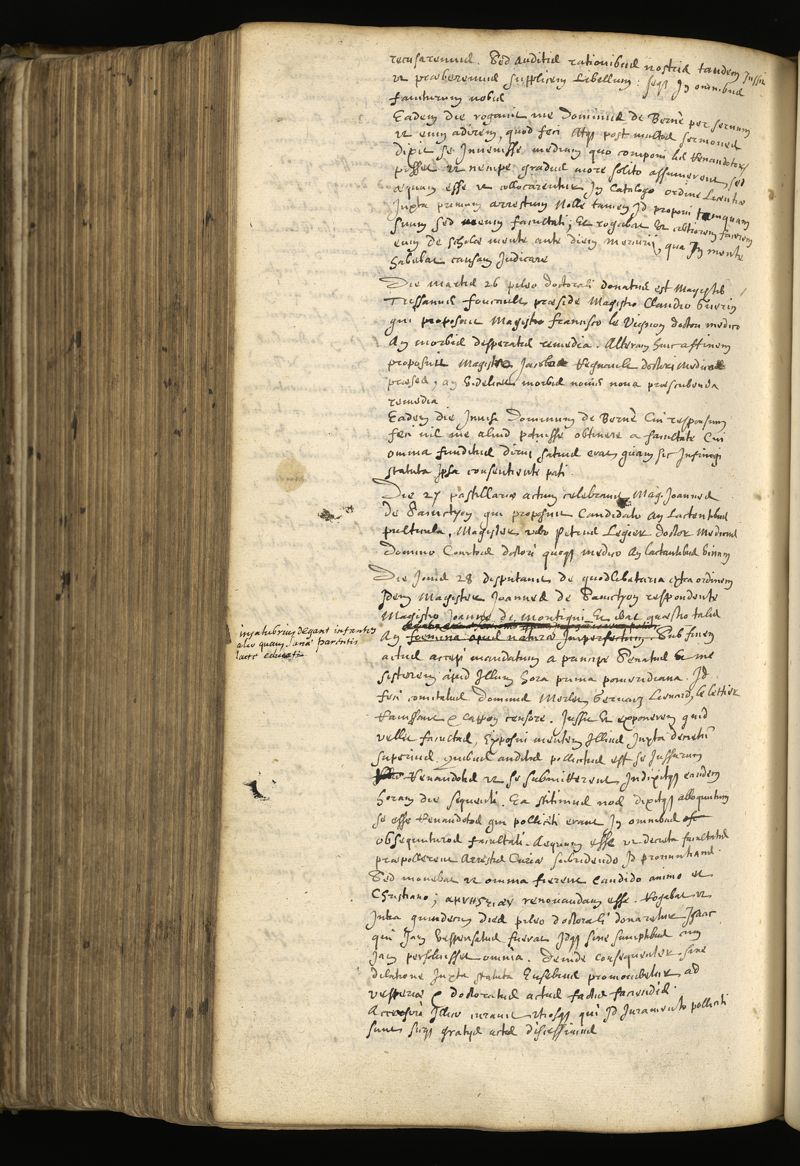 recusaremus. Sed auditis rationibus nostris tandem Jussit
ut præberemus supplicem Libellum: seqz In omnibus
fauturum nobis
Eadem die rogavit me Dominus de Bernè per servum
ut eum adirem, quod feci Atqz post multos sermones
dixit se Invenisse medium quo componi lis Renandotor
posset ut nempe gradus more solito assumerent, sed
æquum esse ut collocarentur In Catalogo ordine Licentiæ
Juxta primum arrestum Nolle tamen Id proponi tanquam
suum sed meum facultati; Et rogabat ut certiorem facerem
eum de scholæ mente ante diem mercurii, qua In mente
habebat causam Judicare
Die martis 26 pileo doctorali donatus est Magister
Tussanus foucault præside Magistro Claudio Guerin
qui proposuit Magistro francisco le Vignon doctori medico
An morbis desperatis remedia. Alteram huic affinem
proposuit Magistro Jacobo doctori Medico
præses, an Videlicet morbis novis nova præscribenda
remedia
Eadem die Invisi Dominum de Bernè Cui responsum
feci nil me aliud potuisse obtinere a facultate Cui
omnia funditus dirui satius erat quam sic Infringi
statuta Ipsa consentiente pati.
Die 27 pastillariæ actum celebravit Mag. Joannes
de Sanctyon qui proposuit Candidato An Lactentibus
pulticula, Magister vero Petrus Legier doctor Medicus
Domino Courtois doctori quoqz medico An lactantibus vinum
Die Jovis 28 disputavit de quodlibetaria extra ordinem
Idem Magister Joannes de Sanctyon respondente
Magistro Joanne de montigni Et erat quæstio talis
insalubrius degant infantes
alio quam sanæ parentis
lacte educati
An foemina opus naturæ Imperfectum. Sub finem
actus accepi mandatum a principe Senatus ut me
sisterem apud Illum hora prima pomeridiana. Id
feci comitatus Dominis Merlet Gervais Lienard, le lettier
Rainssant & censore. Jussit Et exponerem quid
vellet facultas, Exposui mentem Illius Juxta decretum
superius, quibus auditis pollicitus est se Jussurum
Renandotos ut se submitterent Indixitqz eandem
horam die sequenti. Ea stitimus nos dixitqz alloquutum
se esse Renandotos qui polliciti erant In omnibus
obsequuturos facultati. Aequum esse ut decreta facultatis
præpollerent Arrestis Curiæ subridendo Id pronuntians.
Sed monebat ut omnia fierent candido animo et
Christiano; renovandam esse. Rogabat ut
Intra quindecim dies pileo doctorali donaretur Isaac
qui Jam vesperatus fuerat Idqz sine sumptibus cum
Jam persolvisset omnia. Deinde consequenter sine
dilatione Juxta statuta Eusebius promoveretur ad
vesperiæ & doctoratus actus factis faciendis.
Accersiri Illico curavit utrosqz qui Id Juramento polliciti
sunt sicqz gratiis actis discessimus